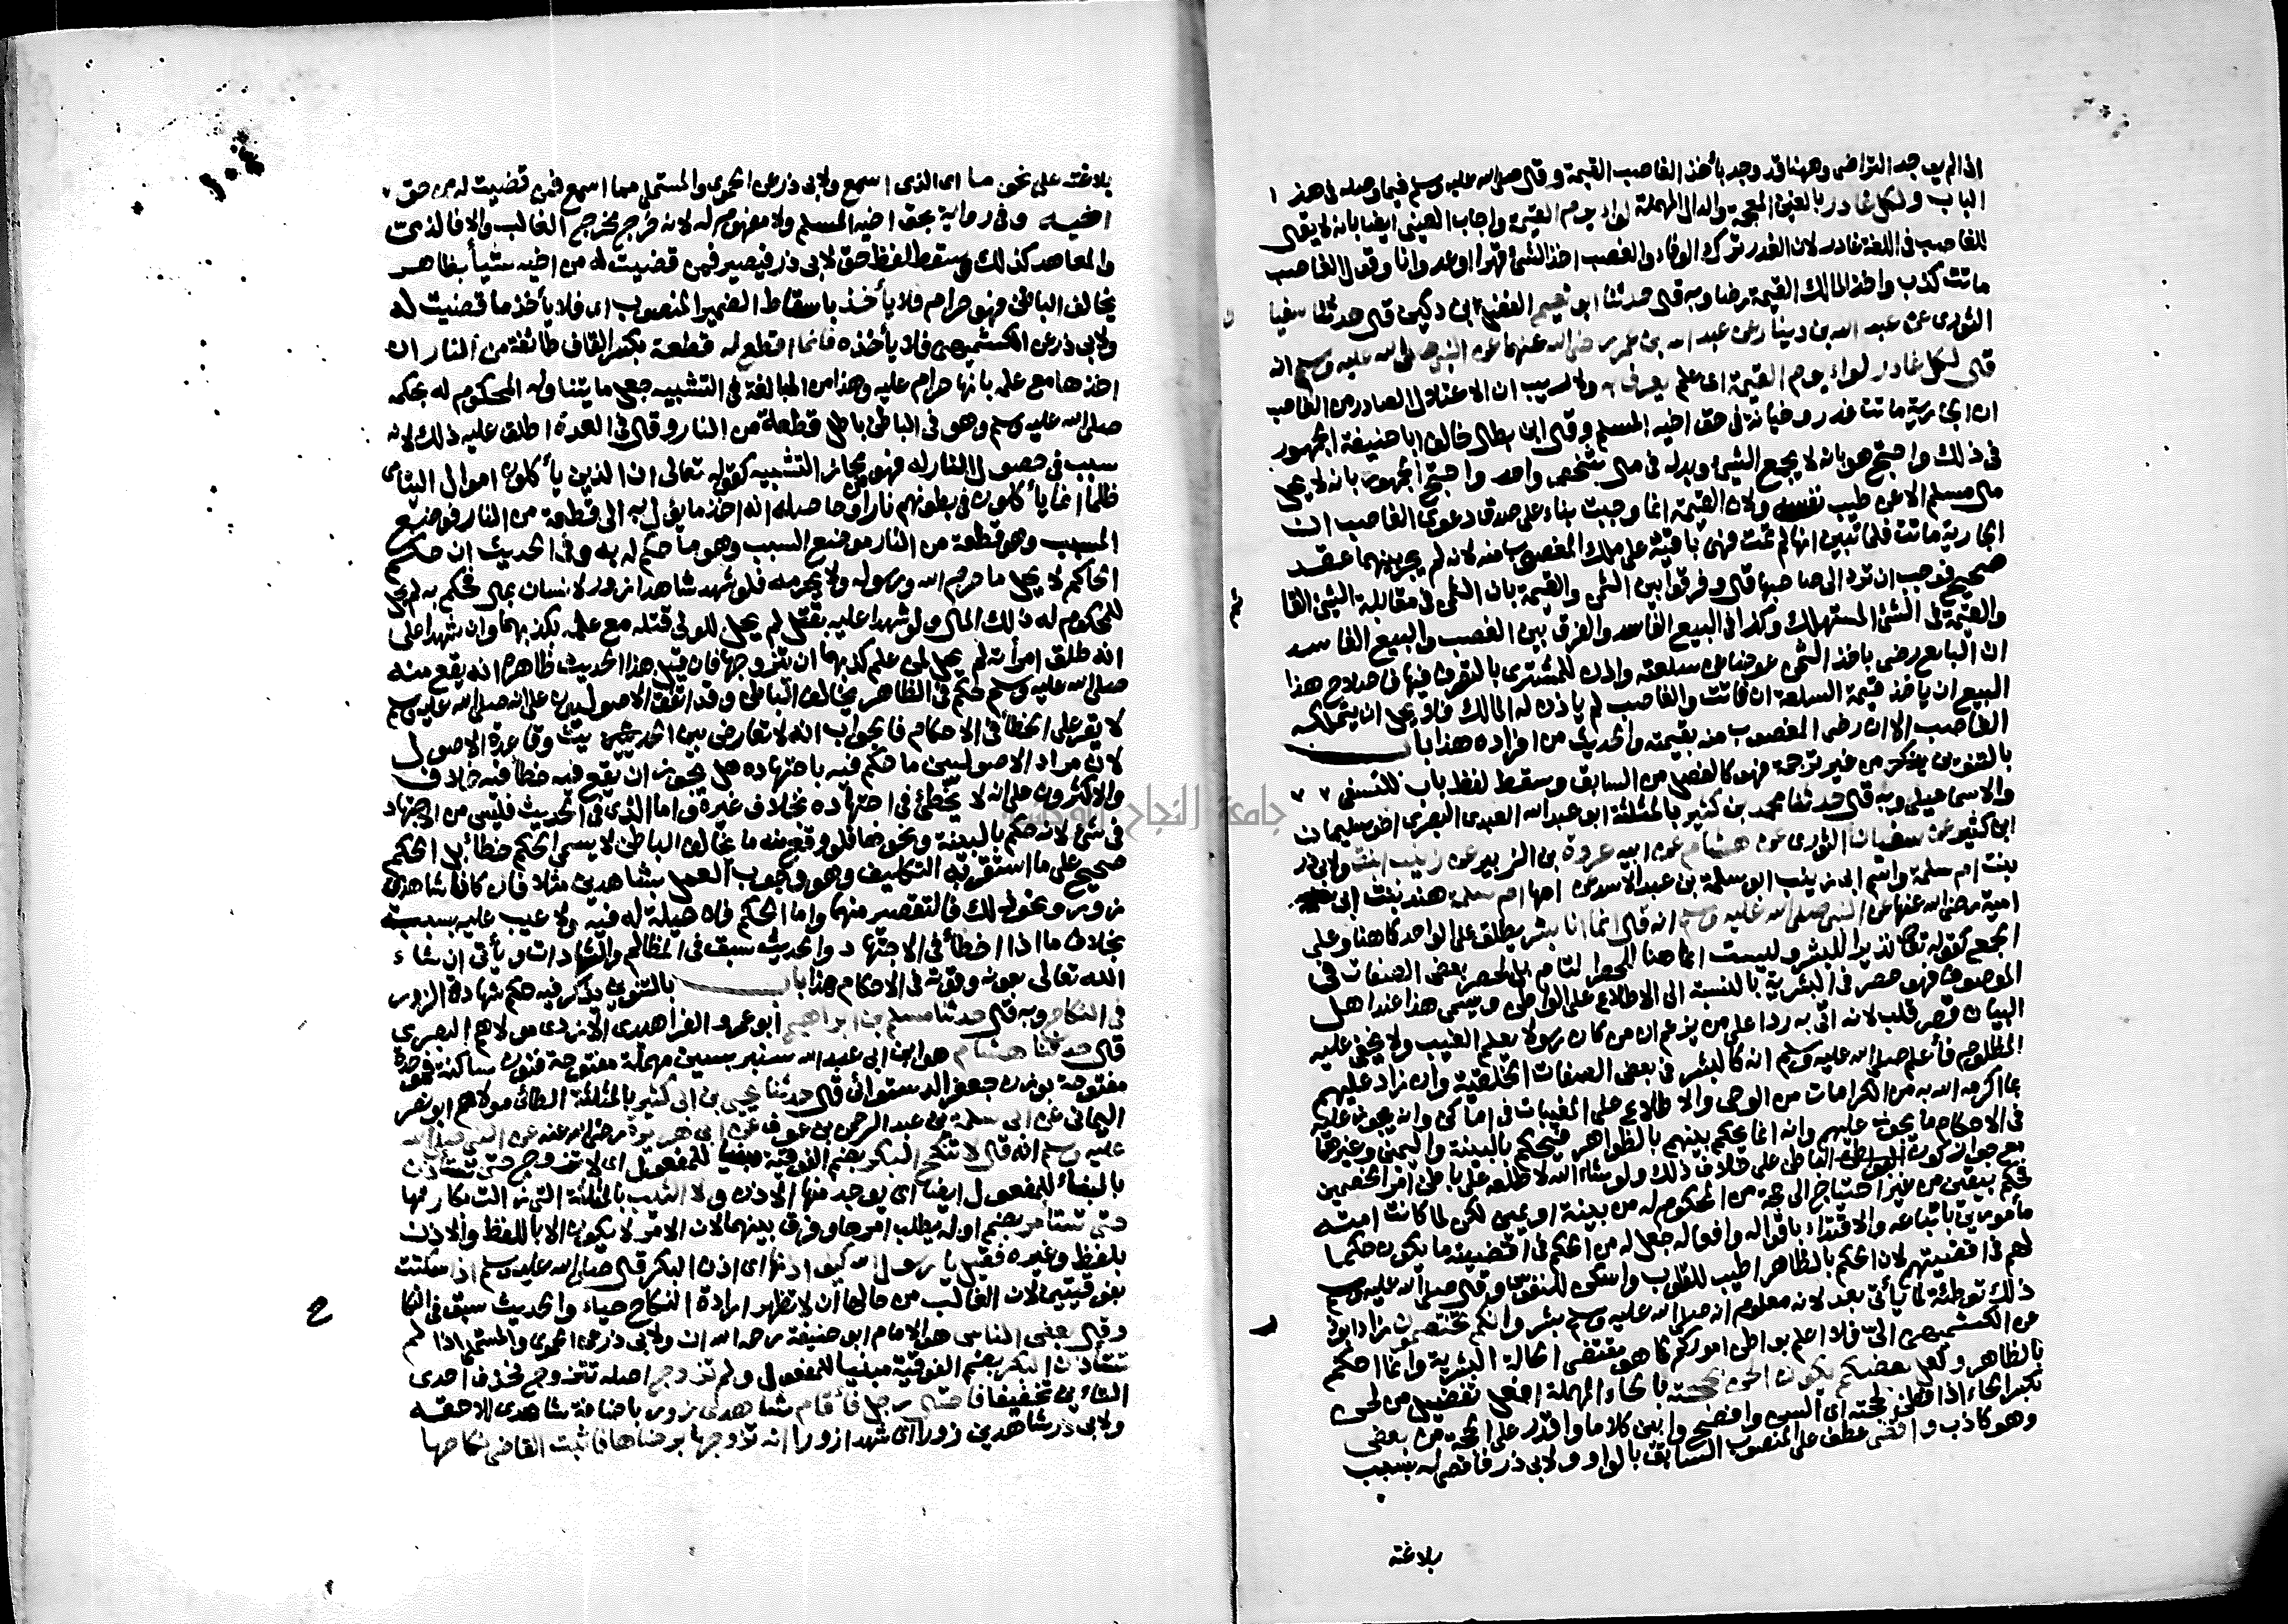 اذا لم يوجد التراضى وههنا قد وجد بأخذ الغاصب القيمة وقال صلى الله عليه وسلم فيما وصله فى هذا
الباب ولكل غادر بالغين المعجمة والدال المهملة لواء يوم القيمة واجاب العينى ايضا بانه لا يقال
للغاصب فى اللغة غادر لان الغدر ترك الوفاء والغصب اخذ الشئ قهرا وعدوانا وقول الغاصب
ماتت كذب واخذ المالك القيمة رضا وبه قال حدثنا ابو نعيم الفضل بن دكين قال حدثنا سفيا
ن
الثورى عن عبد الله بن دينار عن عبد الله بن عمر رضى الله عنهما عن النبى صلى الله عليه وسلم انه
قال لكل غادر لواء يوم القيمة اى علم يعرف به ولا ريب ان الاعتلال الصادر من الغاصب
ان الجارية ماتت غدر وخيانة فى حق اخيه المسلم وقال ابن بطال خالف ابا حنيفة الجمهور
فى ذلك واحتج هو بانه لا يجمع الشئ وبدله فى ملك شخص واحد واحتج الجمهور بانه لا يحل
مال مسلم الا عن طيب نفسه ولان القيمة انما وجبت بناء على صدق دعوى الغاصب ان
الجارية ماتت فلما تبين انها لم تمت فهى باقية على ملك المغصوب منه لانه لم يجر بينهما عقد
صحيح فوجب ان ترد الى صاحبها قال وفرقوا بين الثمن والقيمة بان الثمن فى مقابلة الشئ القا
ئم
والقيمة فى الشئ المستهلك وكذا فى البيع الفاسد والفرق بين الغصب والبيع الفاسد
ان البايع رضى باخذ الثمن عوضا عن سلعته واذن للمشترى بالتصرف فيها فاصلاح هذا
البيع ان ياخذ قيمة السلعة ان فاتت والغاصب لم ياذن له المالك فلا يحل ان يتملكه
الغاصب الا ان رضى المغصوب منه بقيمته والحديث من افراده هذا باب
بالتنوين يذكر من غير ترجمة فهو كالفصل من السابق وسقط لفظ باب للنسفى
والاسماعيلى وبه قال حدثنا محمد بن كثير بالمثلثة ابو عبد الله العبدى البصرى اخو سليمان
ابن كثير عن سفيان الثورى عن هشام عن ابيه عروة بن الزبير عن زينب ابنت ولابى ذر
بنت ام سلمة واسم ابى زينب ابو سلمة بن عبد الاسد عن امها ام سلمة هند بنت ابى
امية رضى الله عنها عن النبى صلى الله عليه وسلم انه قال انما انا بشر يطلق على الواحد كما هنا وعلى
الجمع كقوله تعالى نذيرا للبشر وليست انما هنا للحصر التام بل لحصر بعض الصفات فى
الموصوف فهو حصر فى البشرية بالنسبة الى الاطلاع على البواطن ويسمى هذا عند اهل
البيان قصر قلب لانه اتى به ردا على من يزعم ان من كان رسولا يعلم الغيب ولا يخفى عليه
المظلوم فأعلم صلى الله عليه وسلم انه كالبشر فى بعض الصفات الخلقية وان زاد عليهم
بما اكرمه الله به من الكرامات من الوحى والاطلاع على المغيبات فى اماكن وانه يجوز عليه
فى الاحكام ما يجوز عليهم وانه انما يحكم بينهم بالظواهر فيحكم بالبينة واليمين وغيرهما
مع جواز كون الباطن على خلاف ذلك ولو شاء الله لاطلعه على باطن امر الخصمين
فحكم بيقين من غير احتياج الى حجة من المحكوم له من بينة او يمين لكن لما كانت امته
مأمورين باتباعه والاقتداء باقواله وافعاله جعل له من الحكم فى اقضيته ما يكون حكما
لهم فى اقضيتهم لان الحكم بالظاهر اطيب للقلوب واسكن للنفوس وقال صلى الله عليه وسلم
ذلك توطئة لما يأتى بعد لانه معلوم انه صلى الله عليه وسلم بشر وانكم تختصمون زاد ابو ذر
عن الكشميهنى الى فلا اعلم بواطن اموركم كما هو مقتضى الحالة البشرية وانما احكم
بالظاهر ولعل بعضكم يكون الحن بحجته بالحاء المهملة افعل تفضيل من لحن
بكسر الحاء اذا فطن لحجته اى السن وافصح وابين كلاما واقدر على الحجة من بعض
وهو كاذب واقضى عطف على المنصوب السابق بالواو ولابى ذر فاقضى له بسبب
بلاغته
بلاغته على نحو ما اى الذى اسمع ولابى ذر عن الحموى والمستملى مما اسمع فمن قضيت له من حق
اخيه وفى رواية بحق اخيه المسلم ولا مفهوم له لانه خرج مخرج الغالب والا فالذمى
والمعاهد كذلك وسقط لفظ حق لابى ذر فيصير فمن قضيت له من اخيه شيأ بظاهر
يخالف الباطن فهو حرام فلا يأخذ باسقاط الضمير المنصوب اى فلا يأخذ ما قضيت له
ولابى ذر عن الكشميهنى فلا يأخذه فانما اقطع له قطعة بكسر القاف طائفة من النار ان
اخذها مع علمه بانها حرام عليه وهذا من المبالغة فى التشبيه جعل ما يتناوله المحكوم له بحكمه
صلى الله عليه وسلم وهو فى الباطن باطل قطعة من النار وقال فى العدة اطلق عليه ذلك لانه
سبب فى حصول النار له فهو من مجاز التشبيه كقوله تعالى ان الذين يأكلون اموال اليتامى
ظلما انما يأكلون فى بطونهم نارا وحاصله انه اخذ ما يؤل به الى قطعة من النار فوضع
المسبب وهو قطعة من النار موضع السبب وهو ما حكم له به وفى الحديث ان حكم
الحاكم لا يحل ما حرم الله ورسوله ولا يحرمه فلو شهد شاهدا زور لانسان بمال فحكم به لم يحل
للمحكوم له ذلك المال ولو شهدا عليه بقتل لم يحل للولى قتله مع علمه بكذبهما وان شهدا على
انه طلق امرأته لم يحل لمن علم كذبهما ان يتزوجها فان قيل هذا الحديث ظاهره انه يقع منه
صلى الله عليه وسلم حكم فى الظاهر يخالف الباطن وقد اتفق الاصوليون على انه صلى الله عليه وسلم
لا يقر على الخطأ فى الاحكام فالجواب انه لا تعارض بين الحديث وقاعدة الاصول
لان مراد الاصوليين ما حكم فيه باجتهاده هل يجوز ان يقع فيه خطأ فيه خلاف
والاكثرون على انه لا يخطئ فى اجتهاده بخلاف غيره واما الذى فى الحديث فليس من الاجتهاد
فى شئ لانه حكم بالبينة ونحوها فلو وقع منه ما يخالف الباطن لا يسمى الحكم خطأ بل الحكم
صحيح على ما استقر به التكليف وهو وجوب العمل بشاهدين مثلا فان كانا شاهدى
زور ونحو ذلك فالتقصير منهما واما الحكم فلا حيلة له فيه ولا عيب عليه بسببه
بخلاف ما اذا اخطأ فى الاجتهاد والحديث سبق فى المظالم والشهادات ويأتى ان شاء
الله تعالى بعونه وقوته فى الاحكام هذا باب بالتنوين يذكر فيه حكم شهادة الزور
فى النكاح وبه قال حدثنا مسلم بن ابراهيم ابو عمرو الفراهيدى الازدى مولاهم البصرى
قال حدثنا هشام هو ابن ابى عبد الله سنبر بسين مهملة مفتوحة فنون ساكنة فموحدة
مفتوحة بوزن جعفر الدستوائى قال حدثنا يحيى بن ابى كثير بالمثلثة الطائى مولاهم ابو نصر
اليمانى عن ابى سلمة بن عبد الرحمن بن عوف عن ابى هريرة رضى الله عنه عن النبى صلى الله
عليه وسلم انه قال لا تنكح البكر بضم الفوقية مبنيا للمفعول اى لا تزوج حتى تستأذن
بالبناء للمفعول ايضا اى يوجد منها الاذن ولا الثيب بالمثلثة التى زالت بكارتها
حتى تستأمر بضم اوله يطلب امرها وفرق بينهما لان الامر لا يكون الا باللفظ والاذن
بلفظ وغيره فقيل يا رسول الله كيف اذنها اى اذن البكر قال صلى الله عليه وسلم اذا سكتت
بفوقيتين لان الغالب من حالها ان لا تظهر ارادة النكاح حياء والحديث سبق فى النكا
ح
وقال بعض الناس هو الامام ابو حنيفة رحمه الله ان ولابى ذر عن الحموى والمستملى اذا لم
تستأذن البكر بضم الفوقية مبنيا للمفعول ولم تزوج اصله تتزوج فحذف احدى
التاءين تخفيفا فاحتال رجل فأقام شاهدى زور باضافة شاهدى للاحقه
ولابى ذر شاهدين زورا اى شهدا زورا انه تزوجها برضاها فاثبت القاضى نكاحها
جامعة النجاح